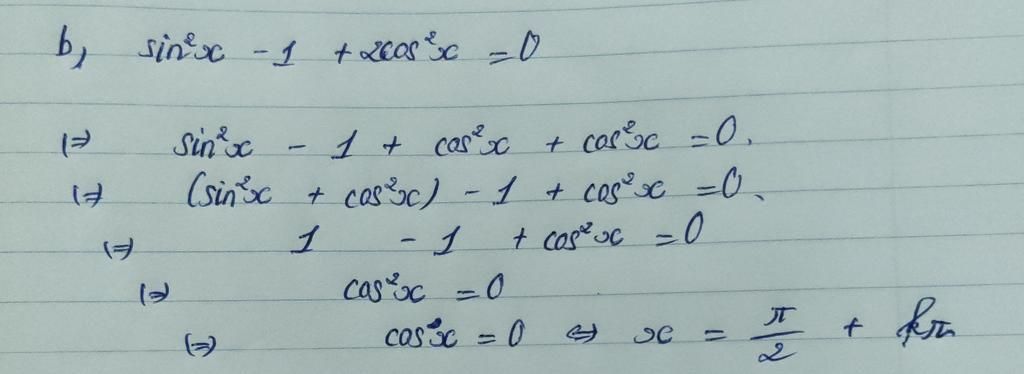 b, sin²x - 1 + 2cos²x = 0
(=) sin²x - 1 + cos²x + cos²x = 0.
(=) (sin²x + cos²x) - 1 + cos²x = 0.
(=) 1 - 1 + cos²x = 0
(=) cos²x = 0
(=) cosx = 0 ⇔ x = π/2 + kπ